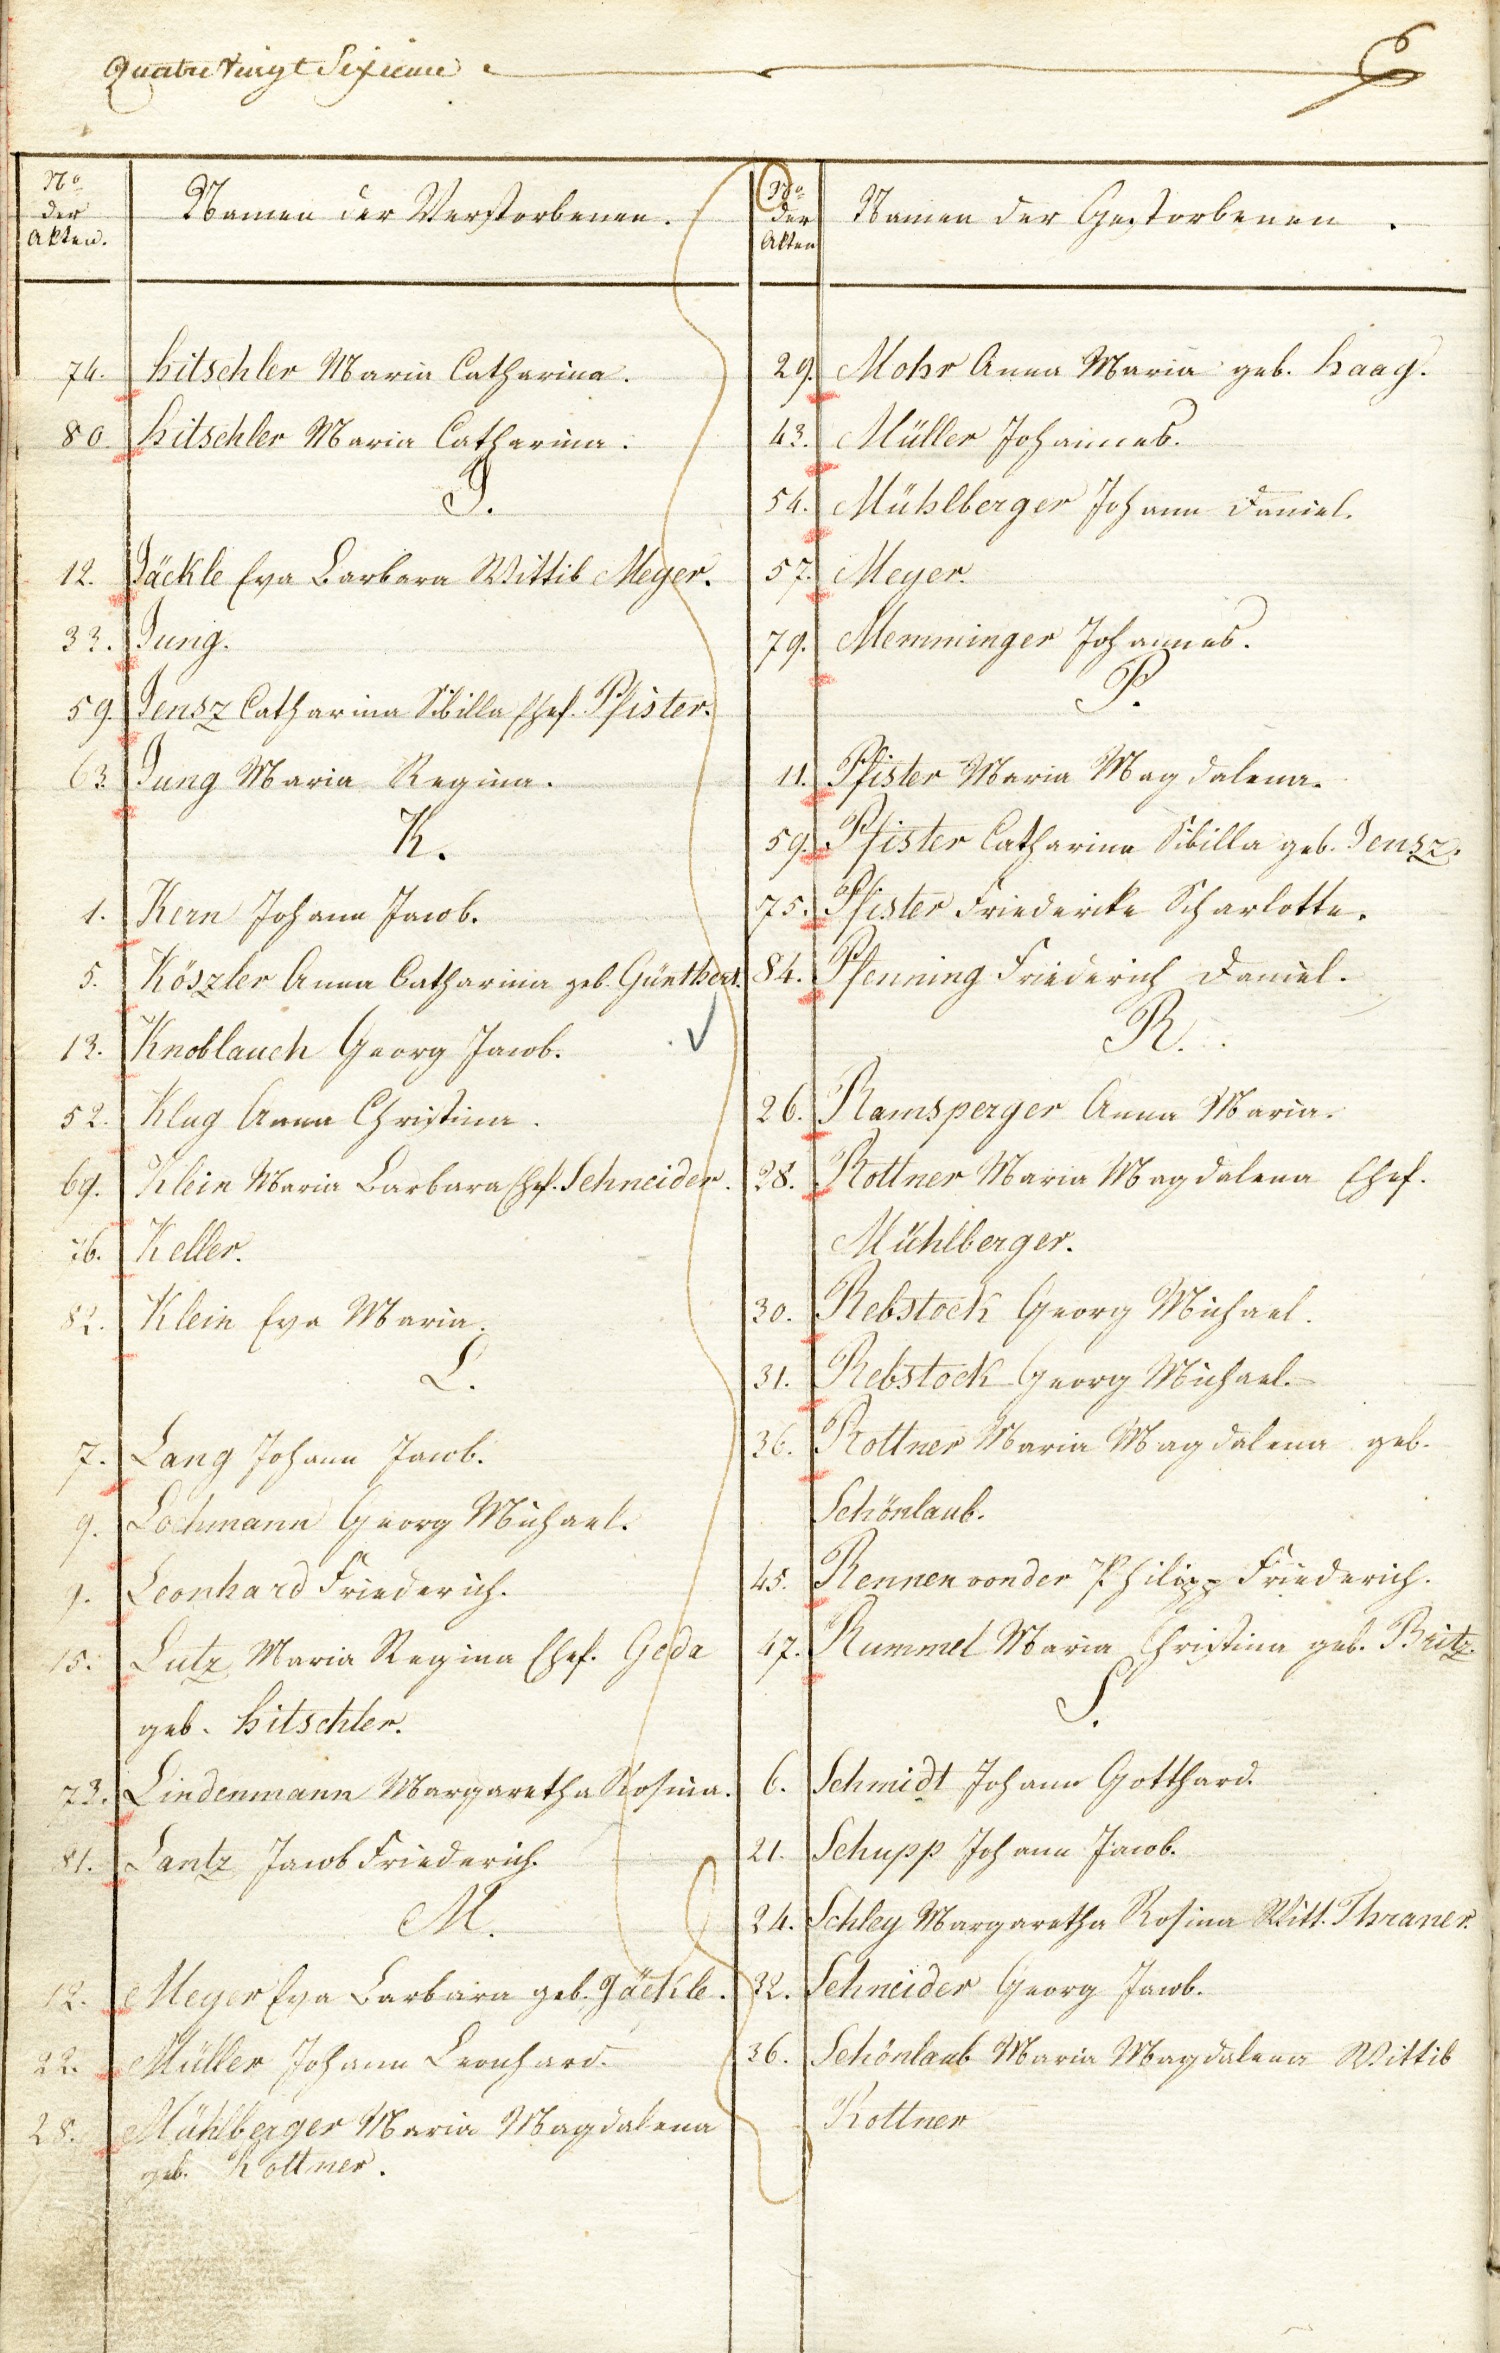 Quatre Vingt Sixieme
No
der
Akten.
Namen der Verstorbenen.
74. Hitschler Maria Catharina.
80. Hitschler Maria Catharina.
J.
12. Jäckle Eva Barbara Wittib Meyer.
33. Jung.
59. Jensz Catharina Sibilla Ehef. Pfister.
63. Jung Maria Regina.
K.
1. Kern Johann Jacob.
5. Köszler Anna Catharina geb. Günthert.
13. Knoblauch Georg Jacob.
52. Klug Anna Christina.
69. Klein Maria Barbara Ehef. Schneider.
76. Keller.
82. Klein Eva Maria.
L.
7. Lang Johann Jacob.
9. Lochmann Georg Michael.
9. Leonhard Friederich.
15. Lutz Maria Regina Ehef. Geda
geb. Hitschler.
73. Lindenmann Margaretha Rosina.
81. Lantz Jacob Friederich.
M.
12. Meyer Eva Barbara geb. Jäckle.
22. Müller Johann Leonhard.
28. Mühlberger Maria Magdalena
geb. Rottner.
No
der
Akten
Namen der Gestorbenen.
29. Mohr Anna Maria geb. Haag.
43. Müller Johannes.
54. Mühlberger Johann Daniel.
57. Meyer.
79. Memminger Johannes.
P.
11. Pfister Maria Magdalena.
59. Pfister Catharina Sibilla geb. Jensz.
75. Pfister Friedericke Scharlotte.
84. Pfenning Friederich Daniel.
R.
26. Ramsperger Anna Maria.
28. Rottner Maria Magdalena Ehef.
Mühlberger.
30. Rebstock Georg Michael.
31. Rebstock Georg Michael.
36. Rottner Maria Magdalena geb.
Schönlaub.
45. Rennen von der Philipp Friederich.
47. Rummel Maria Christina geb. Britz.
S.
6. Schmidt Johann Gotthard.
21. Schupp Johann Jacob.
24. Schley Margaretha Rosina Witt. Thraner.
32. Schneider Georg Jacob.
36. Schönlaub Maria Magdalena Wittib
Rottner